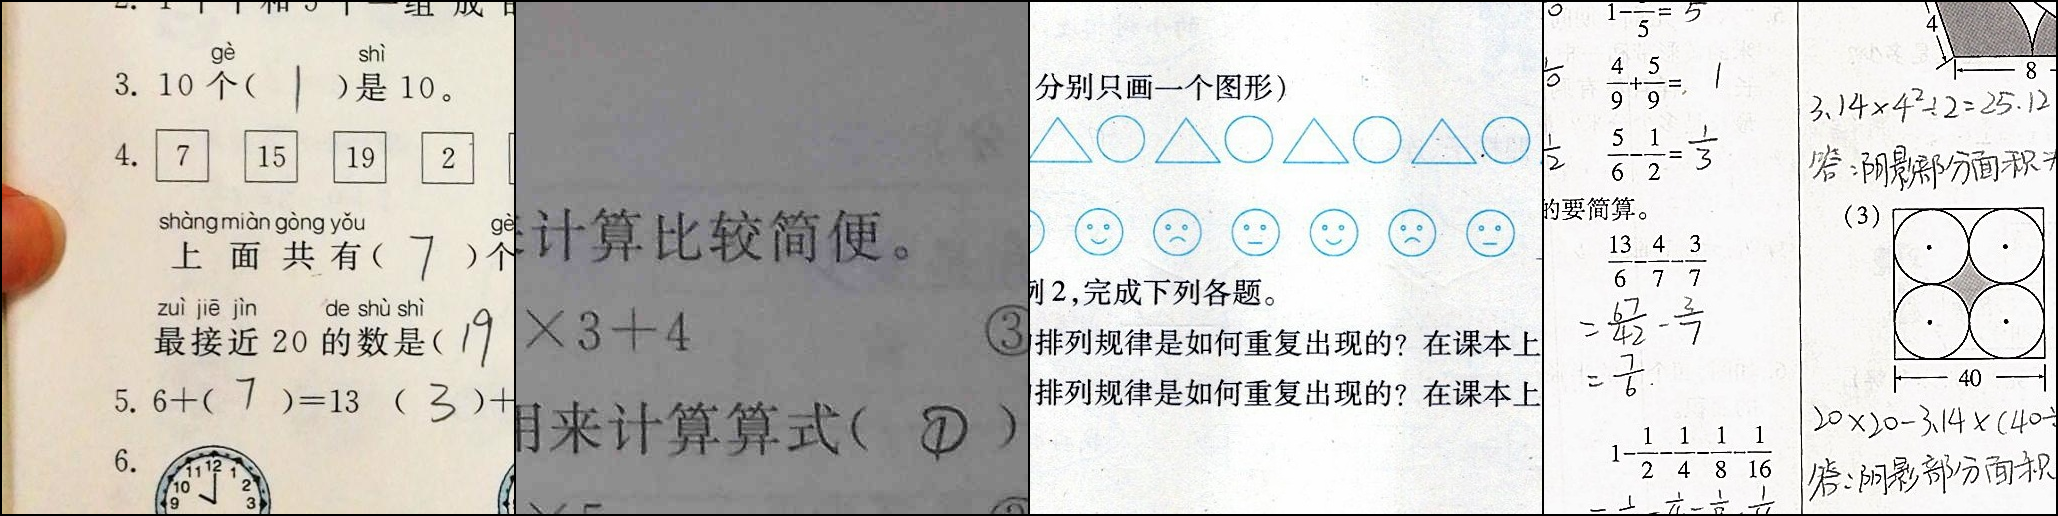 gè shì
3. 10 个( 1 )是 10。
4. 7 15 19 2
shàng miàn gòng yǒu gè
上 面 共 有( 7 )个
zuì jiē jìn de shù shì
最 接 近 20 的 数 是( 19
5. 6+( 7 )=13 ( 3 )+
6.
11 12 1
10 2
9 3
计算比较简便。
×3+4 ③
用来计算算式( ① )
分别只画一个图形)
例2,完成下列各题。
排列规律是如何重复出现的? 在课本上
排列规律是如何重复出现的? 在课本上
4/9+5/9= 1
5/6-1/2=1/3
的要简算。
13/6-4/7-3/7
=67/42-3/7
=7/6.
1-1/2-1/4-1/8-1/16
4
8
3.14×4²÷2=25.12
答:阴影部分面积
(3)
40
20×20-3.14×(40÷
答:阴影部分面积